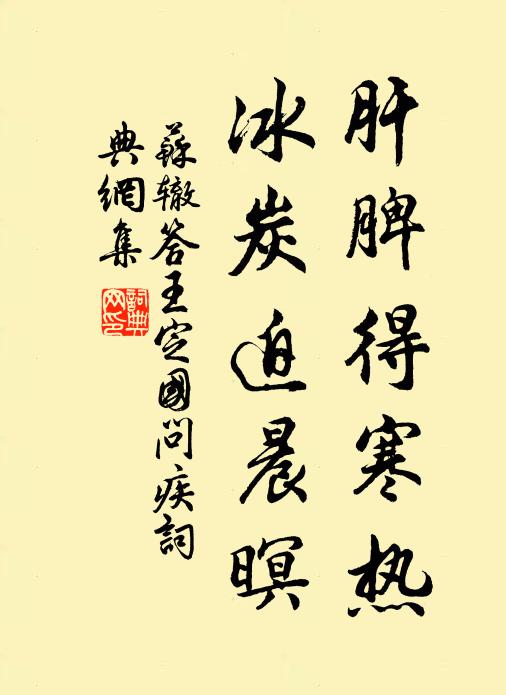 肝脾得寒热
冰炭迫晨暝
蘇辙答王定國問疾詞
典網集
詞典网印